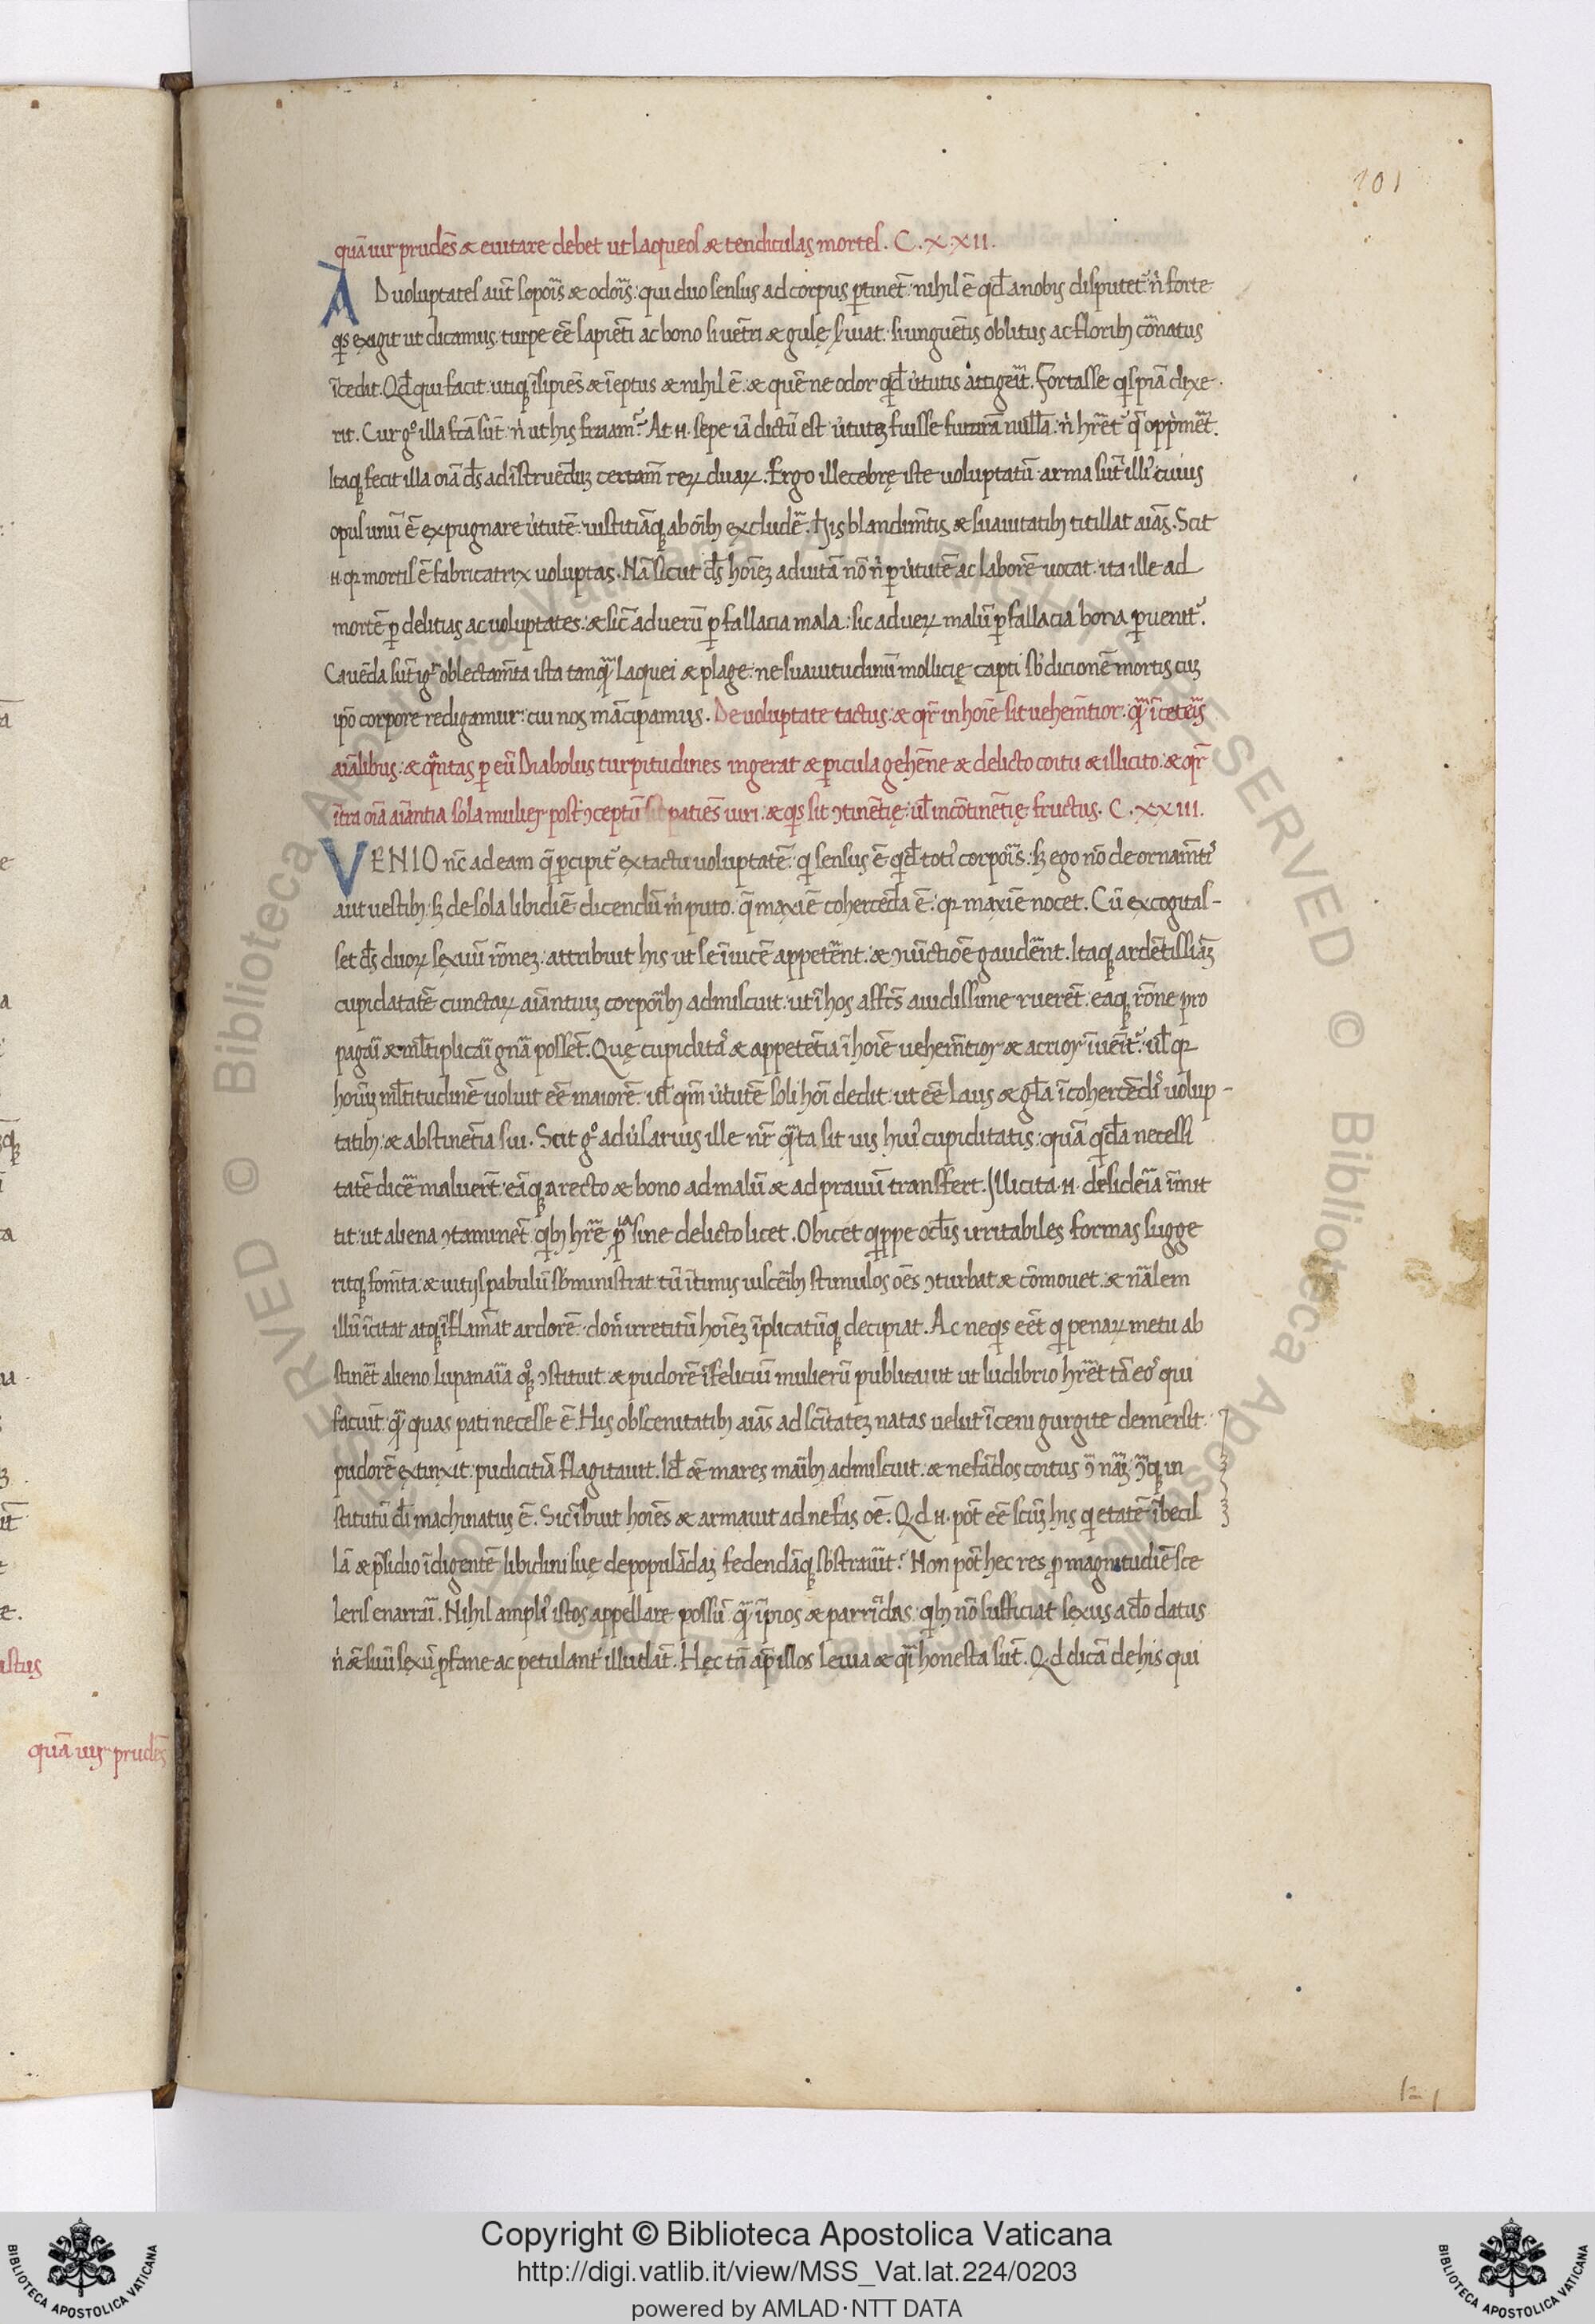 101
quā uir prudēs & euitare debet ut laqueos & tendiculas mortis. C. XXII.
AD uoluptates aūt sapoīs & odoīs: qui duo sensus ad corpus ꝑtinēt: nihil ē qd̄ a nobis disputet᷑ n̓ forte
qͥs exigit ut dicamus. turpe eē sapiēti ac bono si uētri & gulę s̓uiat. si unguētis oblitus ac florib; cōnatus
īcedit. Qd̄ qui facit. utiq; īsipiēs & īeptus & nihil ē. & quē ne odor qͥd̄ u̓tutis attigeīt. Fortasse qͥspiā dixe
rit. Cur gͦ illa fc̄a sūt. n̓ ut his fruam᷑? At .N. sepe iā dictū est u̓tutē fuisse futurā nullā. n̓ hr̄et q̄ opp̓meīt.
Itaq; fecit illa oīa d̄s ad īstruēdū certam̄ reꝝ duaꝝ. Ergo illecebrę iste uoluptatū arma sūt illiꝰ cuius
opus unū ē expugnare u̓tutē. iustitiāq; ab oīb; excludē. His blandim̄tis & suauitatib; titillat aīas. Scit
.N. qꝛ mortis ē fabricatrix uoluptas. Nā sicut d̄s hoīez ad uitā nō n̓ ꝑ u̓tutē ac laborē uocat. ita ille ad
mortē ꝑ delitias ac uoluptates: & sic̄ ad uerū ꝑ fallacia mala: sic ad ueꝝ malū ꝑ fallacia bona ꝑuenit᷑.
Cauēda sūt igͥ oblectam̄ta ista tanqͣ̄ laquei & plage: ne suauitudinū mollicię capti sb̓ dicionē mortis cū
ip̄o corpore redigamur: cui nos mācipamus. De uoluptate tactus: & qr̄ in hoīe sit uehem̄tior. qͣ̄ ī ceteīs
aīalibus: & qͣ̄ntas ꝑ eū Diabolus turpitudines ingerat & ꝑicula gehēne & delicto coitu & illicito: & qr̄
īt̄ra oīa aīantia sola mulier post ꝯceptū sit patiēs uiri. & qͥs sit ꝯtinētię: ul̄ incōtinētię fructus. C. XXIII.
VENIO nc̄ ad eam q̄ ꝑcipit᷑ ex tactu uoluptatē: qͥ sensus ē qͥd̄ totiꝰ corpoīs. sꝫ ego nō de ornam̄tꝭ
aut uestib; sꝫ de sola libidīe dicendū m̓ puto. q̄ maxīe cohercēda ē: qꝛ maxīe nocet. Cū excogitas-
set d̄s duoꝝ sexuū rōnez: attribuit his ut se īuicē appetēnt. & ꝯiūctiōe gaudēnt. Itaq; ardētissimā
cupidatatē cunctaꝝ aīantiū corpoīb; admiscuit. ut ī hos affc̄s auidissime ruerēt. eaq; rōne pro
pagaī & ml̄tiplicaī gn̄a possēt. Quę cupiditaͣs & appetētia ī hoīe uehem̄tior & acrior īueīt᷑. ul̄ qꝛ
hoīuꝫ ml̄titudinē uoluit eē maiorē. ul̄ qm̄ u̓tutē soli hoī dedit. ut eē laus & gl̄a ī cohercēdiꝭ uolup-
tatib; & abstinētia sui. Scit gͦ adu̓sarius ille nr̄ qͣ̄ta sit uis huiꝰ cupiditatis: quā qͥd̄a necessi
tatē dicē maluerūt. eāq; a recto & bono ad malū & ad prauū transfert. Illicita .N. desideīa īmit
tit. ut aliena ꝯtaminēt qͥb; hr̄e ꝓpͥa sine delicto licet. Obicet qͥppe ocl̄is irritabiles formas sugge
ritq; fom̄ta. & uitijs pabulū sb̓ministrat. tū ītimis uisceīb; stimulos oēs ꝯturbat & cōmouet. & nālem
illū īcitat atq; īflāmat ardorē. don̄ irretitū hoīez īplicatūq; decipiat. Ac ne qͥs eēt qͥ penaꝝ metu ab
stinēt alieno lupanaīa qͦq; ꝯstituit. & pudorē īfeliciū mulierū publicauit ut ludibrio hr̄et tā eoꝰ qui
faciūt. qͣ̄ quas pati necesse ē. His obscenitatib; aīas ad sc̄itatez natas uelut ī ceni gurgite demersit.
pudorē extinxit. pudicitiā flagitauit. Id̄ & mares maīb; admiscuit. & nefādos coitus ꝯ naīꝫ ꝯq; in
stitutū dī machinatus ē. Sic ībuit hoīes & armauit ad nefas oē. Qd .N. pōt eē sc̄m̄ his qͥ etatē ībecil
lā & p̄sidio īdigentē libidini suę depopulādaꝫ fedendāq; sb̓strauīt? Non pōt hec res ꝓ magnitudīe sce
leris enarraī. Nihil ampliꝰ istos appellare possū. qͣ̄ īpios & parricīdas. qͥb; nō sufficiat sexus a do datus
n̓ & suū sexū ꝓfane ac petulantꝰ illudāt. Hęc tn̄ ap̄ illos leuia & qͣī honesta sūt. Qd dicā de his qui
quā uir prudēs
Copyright © Biblioteca Apostolica Vaticana
http://digi.vatlib.it/view/MSS_Vat.lat.224/0203
powered by AMLAD·NTT DATA
BIBLIOTECA APOSTOLICA VATICANA
BIBLIOTECA APOSTOLICA VATICANA